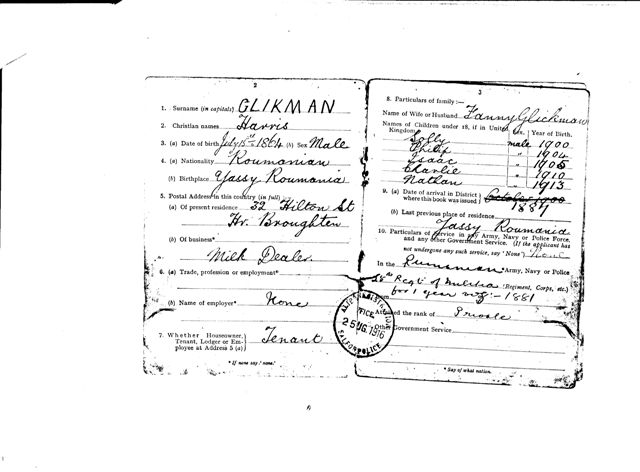 2
1. Surname (in capitals) GLIKMAN
2. Christian names Harris
3. (a) Date of birth July 15th 1864 (b) Sex Male
4. (a) Nationality Roumanian
(b) Birthplace Yassy Roumania
5. Postal Address in this country (in full)
(a) Of present residence 52 Hilton St
Hr. Broughten
(b) Of business*
Milk Dealer.
6. (a) Trade, profession or employment*
(b) Name of employer* None
7. Whether Houseowner,
Tenant, Lodger or Em-
ployee at Address 5 (a) Tenant
* If none say 'none.'
3
8. Particulars of family :—
Name of Wife or Husband Fanny Glickman
Names of Children under 18, if in United
Kingdom Sex. Year of Birth.
Solly male 1900
Philip " 1904
Isaac " 1905
Charlie " 1910
Nathan " 1913
9. (a) Date of arrival in District
where this book was issued October 1900
1887
(b) Last previous place of residence
Yassy Roumania
10. Particulars of Service in any Army, Navy or Police Force,
and any other Government Service. (If the applicant has
not undergone any such service, say 'None') None
In the Rumenian Army, Navy or Police
28th Regt of Militia (Regiment, Corps, etc.)
for 1 year 1881
the rank of Private
Other Government Service
* Say of what nation.
ALIENS REGISTRATION
OFFICE
25 AUG. 1916
SALFORD POLICE